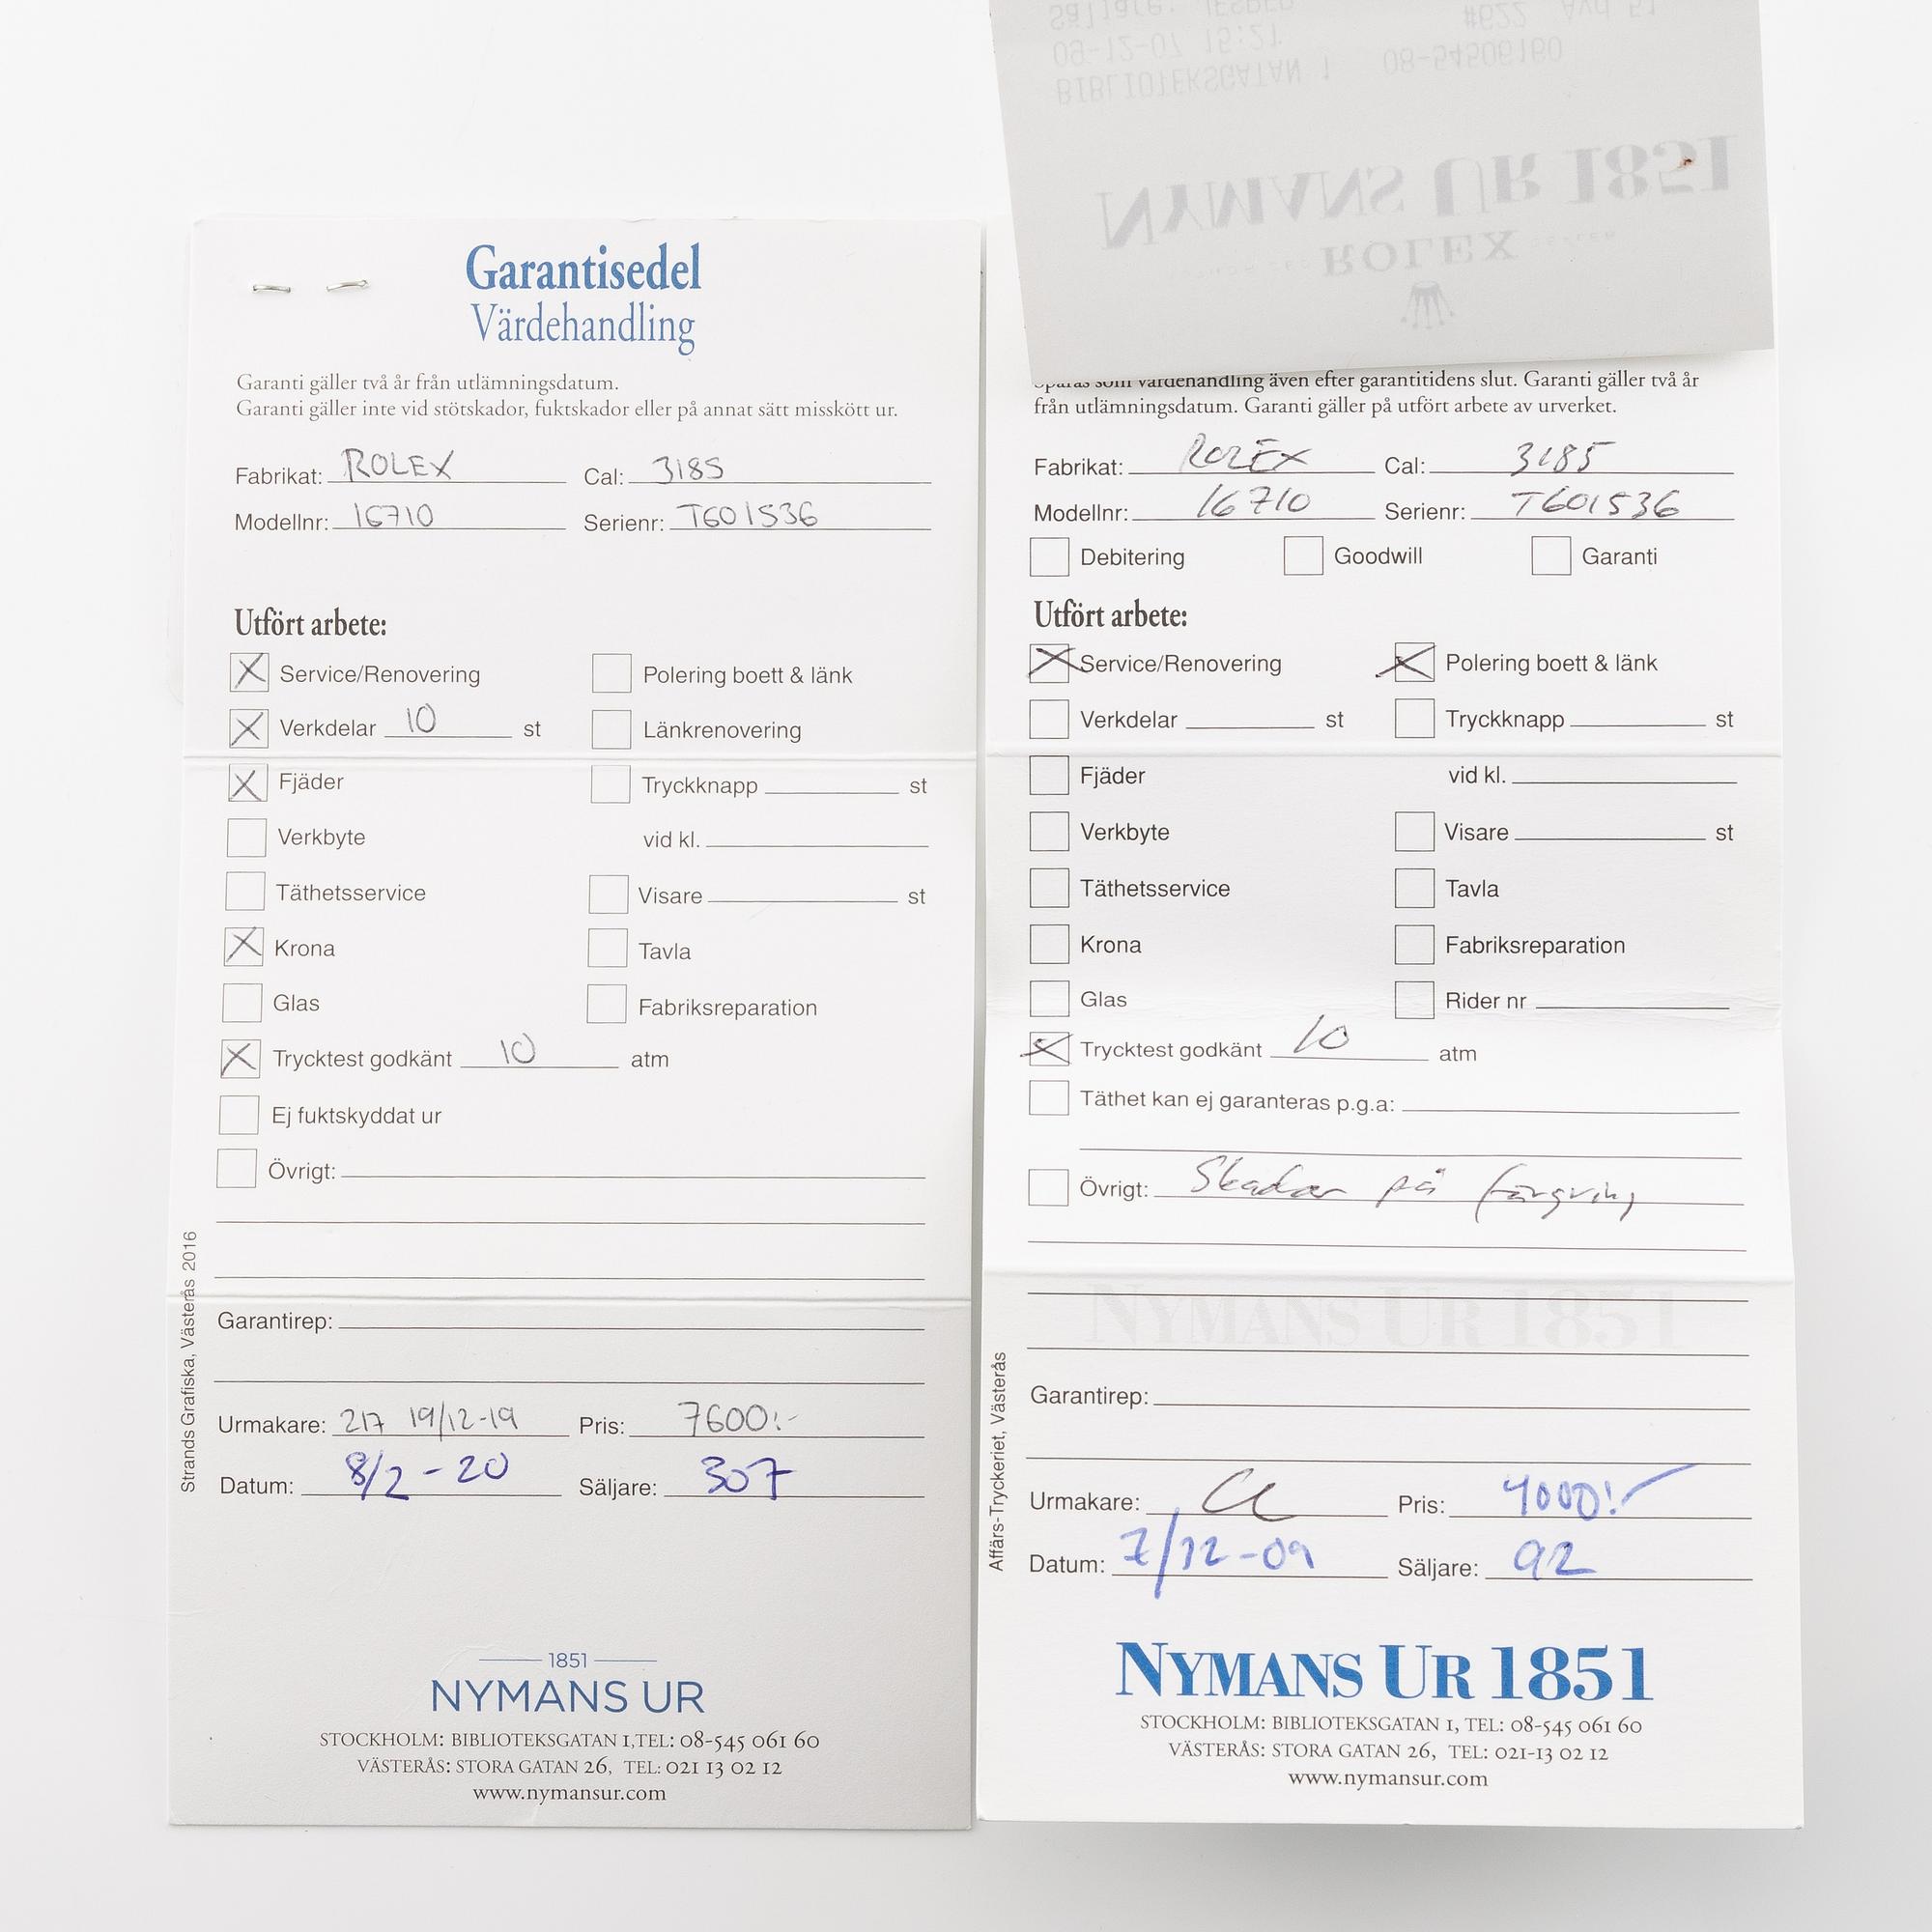 Garantisedel
Värdehandling
Garanti gäller två år från utlämningsdatum.
Garanti gäller inte vid stötskador, fuktskador eller på annat sätt misskött ur.
Fabrikat: ROLEX Cal: 3185
Modellnr: 16710 Serienr: T601536
Utfört arbete:
Service/Renovering Polering boett & länk
Verkdelar 10 st Länkrenovering
Fjäder Tryckknapp st
Verkbyte vid kl.
Täthetsservice Visare st
Krona Tavla
Glas Fabriksreparation
Trycktest godkänt 10 atm
Ej fuktskyddat ur
Övrigt:
Garantirep:
Urmakare: 217 19/12-19 Pris: 7600:-
Datum: 8/2-20 Säljare: 307
Strands Grafiska, Västerås 2016
1851
NYMANS UR
STOCKHOLM: BIBLIOTEKSGATAN 1,TEL: 08-545 061 60
VÄSTERÅS: STORA GATAN 26, TEL: 021 13 02 12
www.nymansur.com
Säljare: JESPER #622 Avd 51
09-12-07 15:21
BIBLIOTEKSGATAN 1 08-54506160
NYMANS UR 1851
ROLEX
Sparas som värdehandling även efter garantitidens slut. Garanti gäller två år
från utlämningsdatum. Garanti gäller på utfört arbete av urverket.
Fabrikat: ROLEX Cal: 3185
Modellnr: 16710 Serienr: T601536
Debitering Goodwill Garanti
Utfört arbete:
Service/Renovering Polering boett & länk
Verkdelar st Tryckknapp st
Fjäder vid kl.
Verkbyte Visare st
Täthetsservice Tavla
Krona Fabriksreparation
Glas Rider nr
Trycktest godkänt 10 atm
Täthet kan ej garanteras p.g.a:
Övrigt: Skador på färgring
NYMANS UR 1851
Garantirep:
Urmakare: Pris: 4000:-
Datum: 7/12-09 Säljare: 92
Affärs-Tryckeriet, Västerås
NYMANS UR 1851
STOCKHOLM: BIBLIOTEKSGATAN 1, TEL: 08-545 061 60
VÄSTERÅS: STORA GATAN 26, TEL: 021-13 02 12
www.nymansur.com